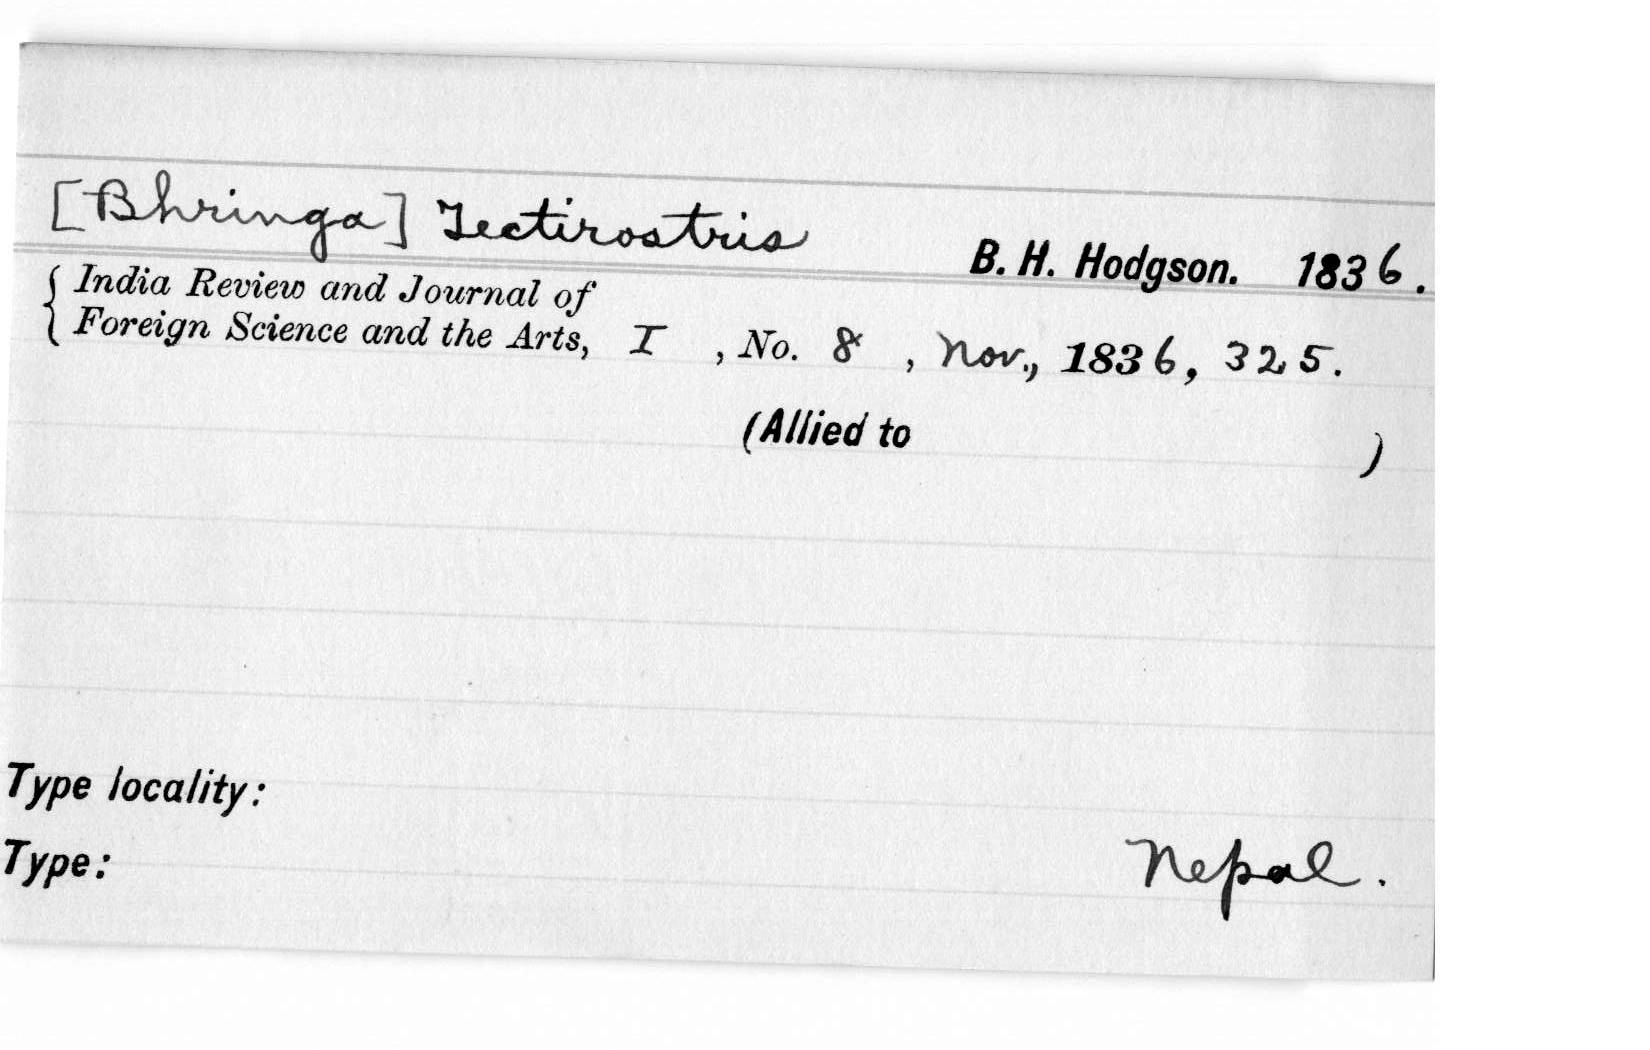 [Bhringa] Tectirostris
B. H. Hodgson. 1836.
{ India Review and Journal of
Foreign Science and the Arts, I , No. 8 , Nov., 1836, 325.
(Allied to )
Type locality:
Type:
Nepal.